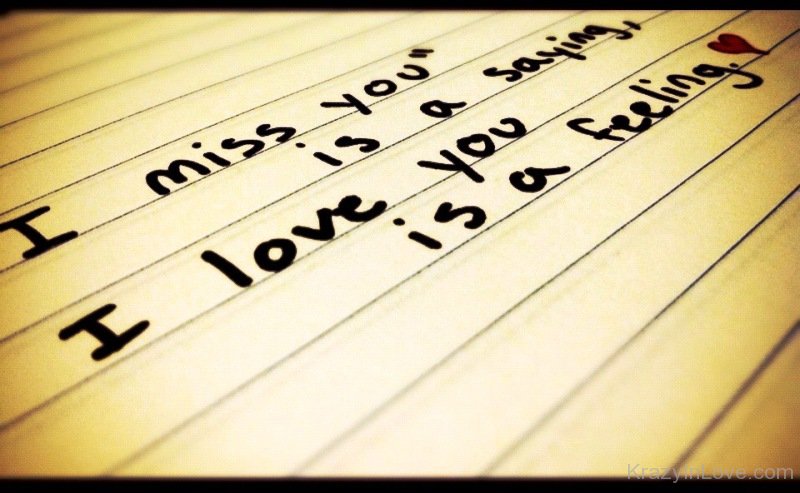 I miss you"
is a saying,
I love you
is a feeling.
KrazyInLove.com